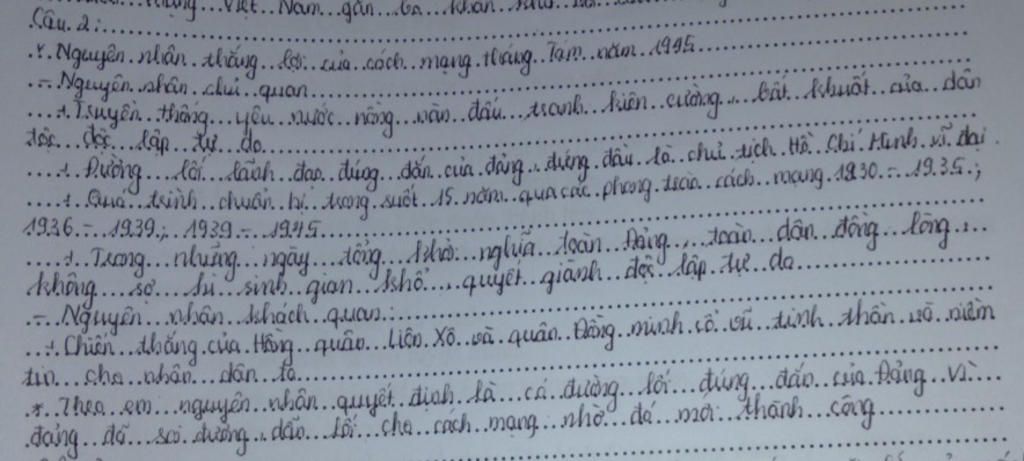 Việt Nam gắn bó khăn
Câu 2:
*. Nguyên nhân thắng lợi của cách mạng tháng Tám năm 1945
- Nguyên nhân chủ quan
+ Truyền thống yêu nước nồng nàn đấu tranh kiên cường, bất khuất của dân
tộc độc lập tự do
+ Đường lối lãnh đạo đúng đắn của đảng, đứng đầu là chủ tịch Hồ Chí Minh vĩ đại
+ Quá trình chuẩn bị trong suốt 15 năm qua các phong trào cách mạng 1930 - 1935;
1936 - 1939; 1939 - 1945
+ Trong những ngày tổng khởi nghĩa toàn Đảng, toàn dân đồng lòng,
không sợ hi sinh gian khổ, quyết giành độc lập tự do
- Nguyên nhân khách quan:
+ Chiến thắng của Hồng quân Liên Xô và quân Đồng minh cổ vũ tinh thần và niềm
tin cho nhân dân ta
* Theo em nguyên nhân quyết định là có đường lối đúng đắn của Đảng vì
đảng đã soi đường dẫn lối cho cách mạng nhờ đó mới thành công